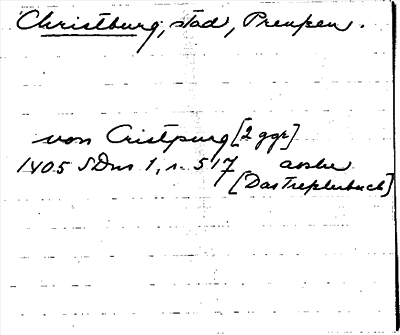 Christburg, stad, Preußen.
von Cristpurg [2 ggr]
1405 SDns 1, s. 517 avskr
[Das Treßlerbuch]